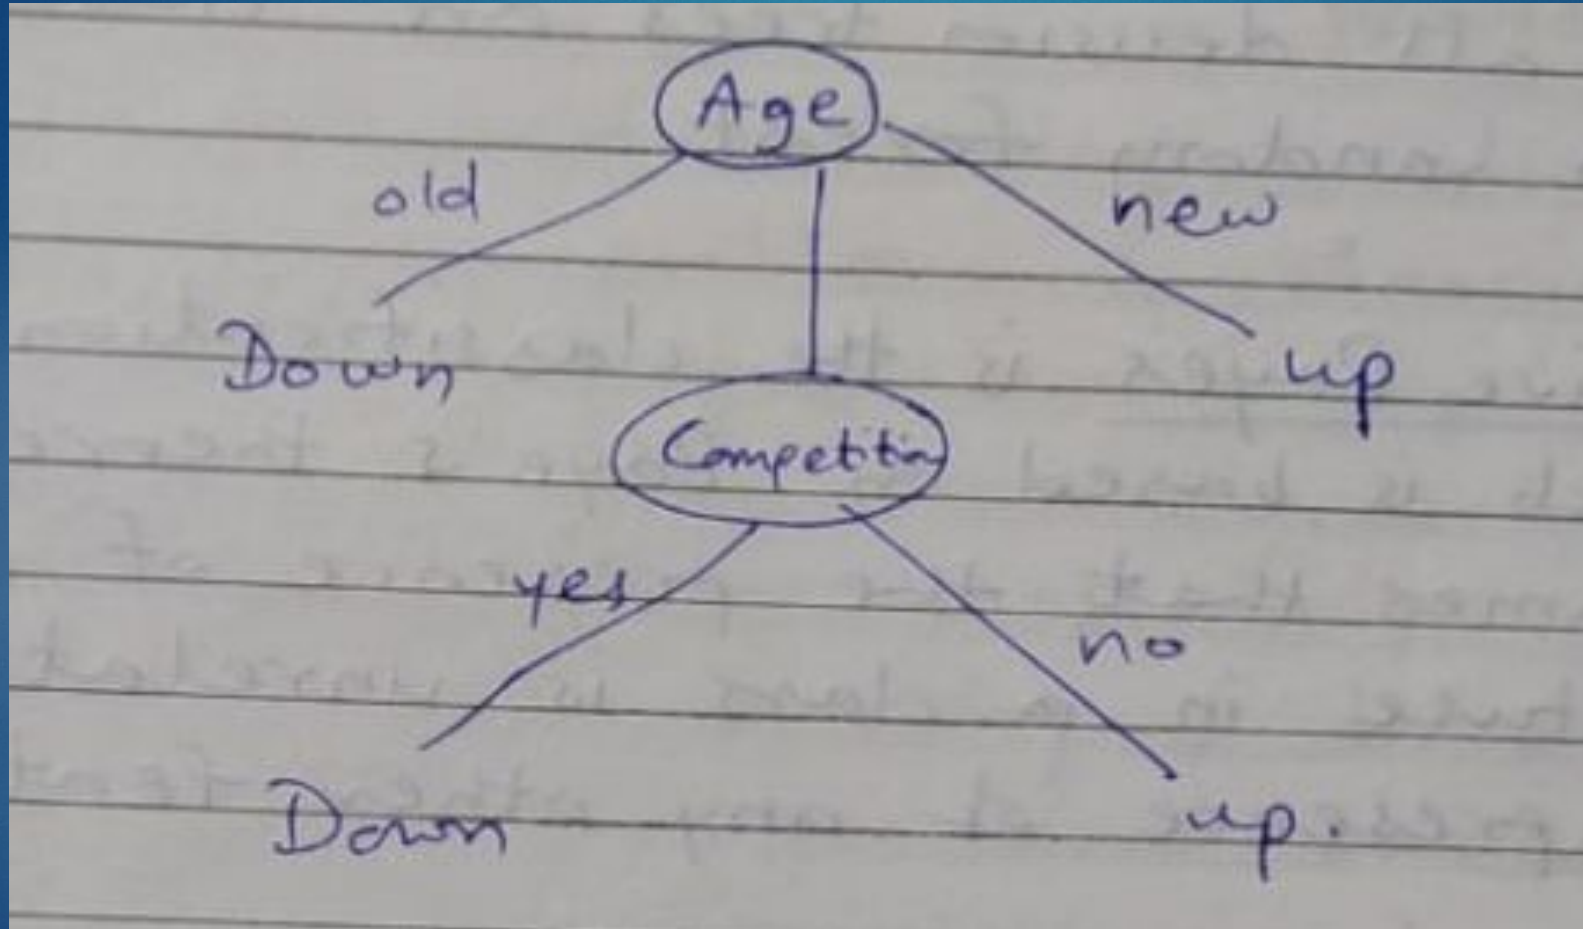 Age
old
new
Down
up
Competition
yes
no
Down
up.